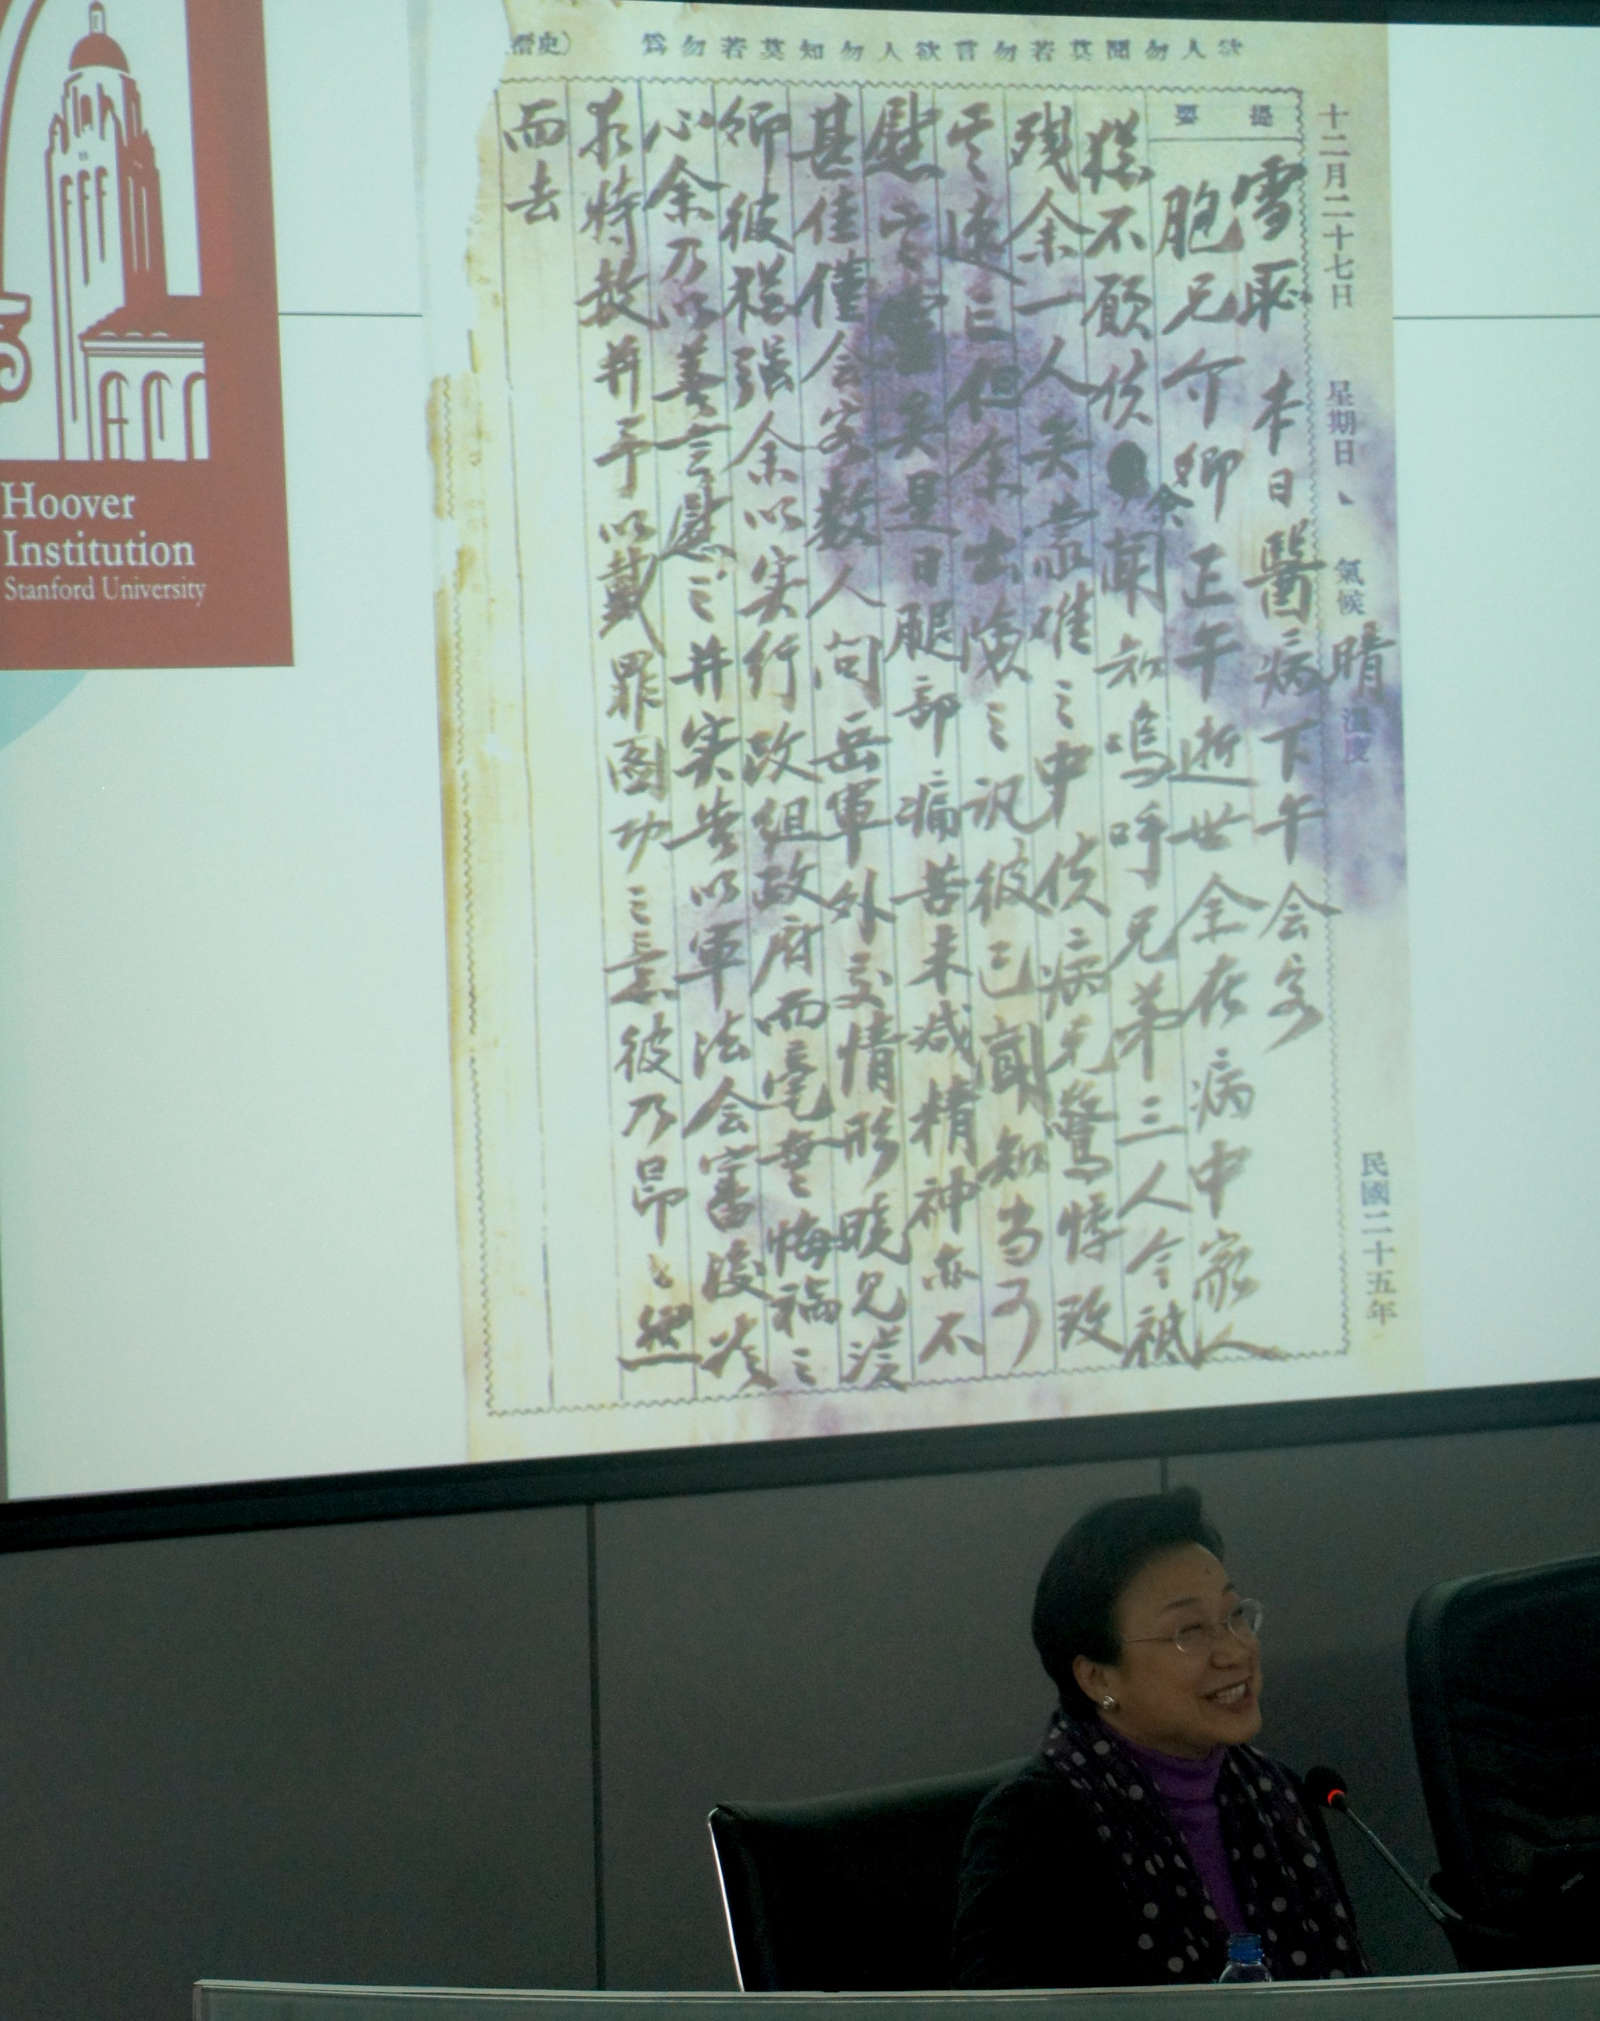 Hoover
Institution
Stanford University
欲人勿聞莫若勿言欲人勿知莫若勿為
十二月二十七日 星期日 氣候 晴 溫度
民國二十五年
提要
雪恥 本日醫病下午会客
胞兄介卿正午逝世余在病中家人
猶不願使余聞知嗚呼兄弟三人今祗
殘余一人矣當雄之中使病兄驚悸致
之速三但余出險之訊彼已聞知当可
慰
矣是日腿部痛苦未减精神亦不
甚佳僅会客数人問岳軍外交情形晚見漢
卿彼猶强余以实行改组政府而毫無悔禍之
心余乃以善言慰之并实告以軍法会審後
求特赦并予以戴罪图功之意彼乃昂々然
而去